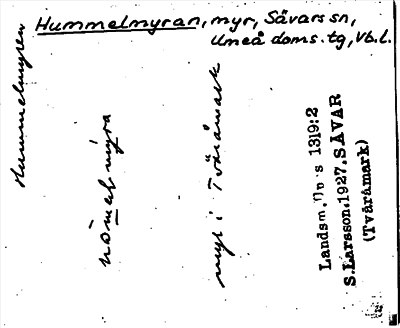 Hummelmyran, myr, Sävars sn,
Umeå doms.tg, Vb.l.
Hummelmyren
myr i Tväråmark
Landsm. 1319:2
S.Larsson.1927.SÄVAR
(Tväråmark)